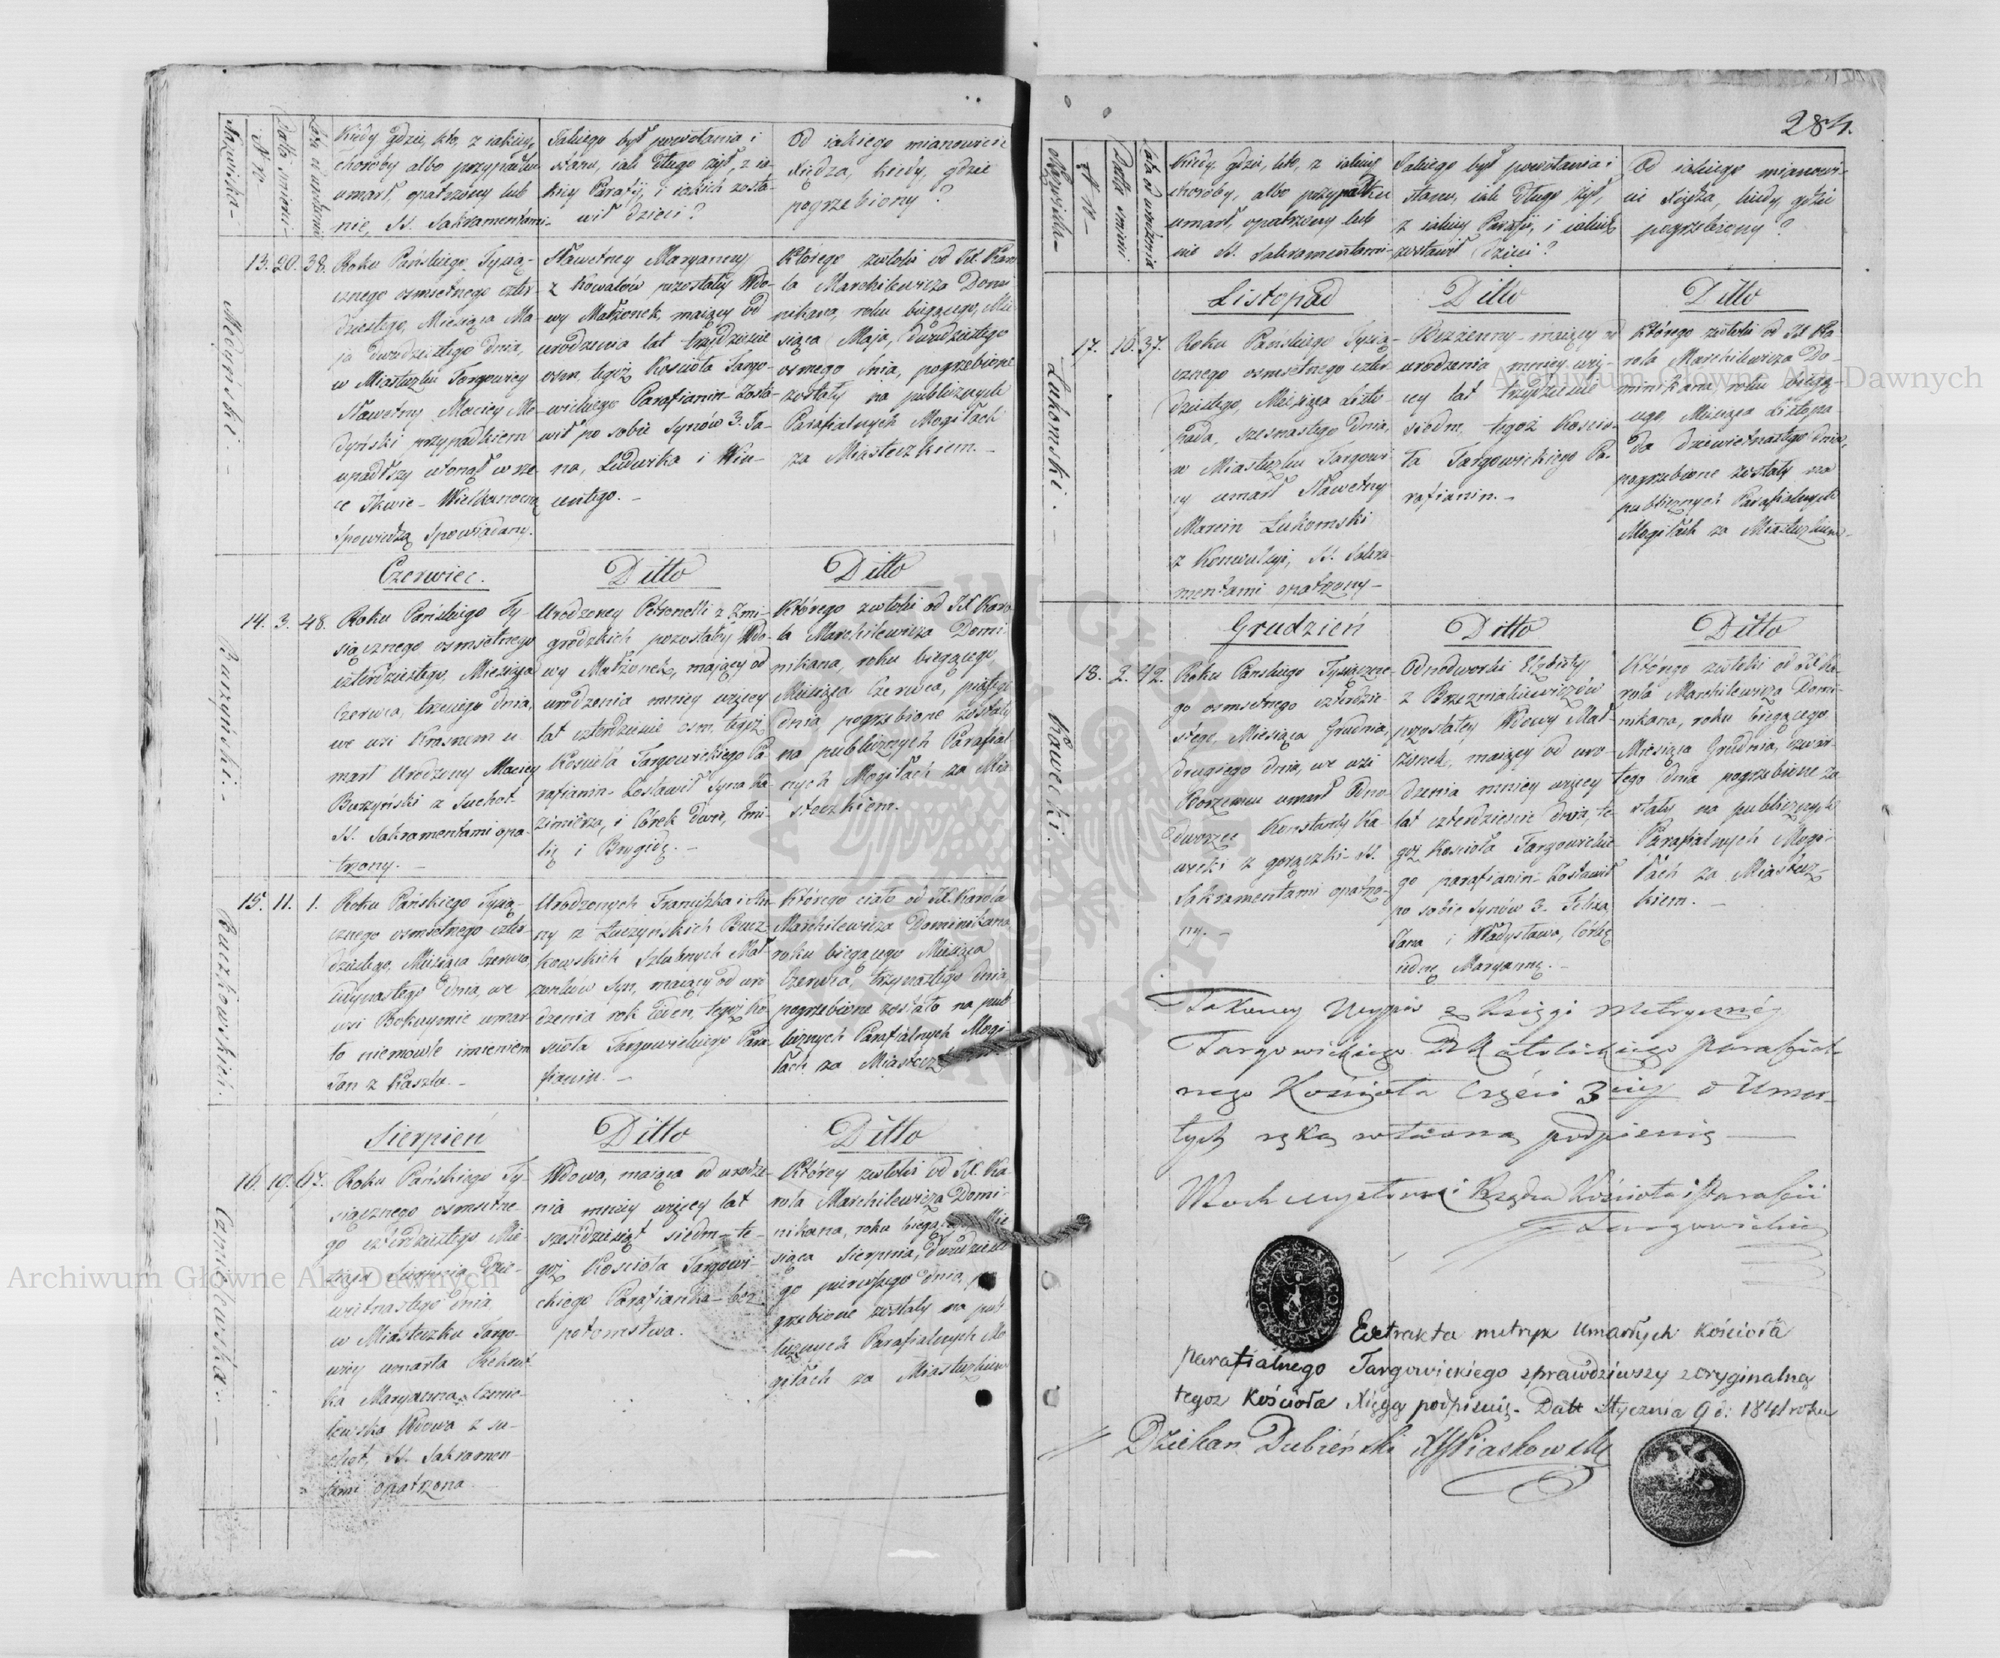 284.
Nazwiska -
N-ro
Datta śmierci -
Lata od urodzenia
Kiedy gdzie, kto, z iakiey
choroby albo przypadku
umarł, opatrzony lub
nie, SS. Sakramentami -
Jakiego był powołania i
stanu, iak długo żył, z ia-
kiey Parafij, i iakich zosta-
wił dzieci?
Od iakiego mianowicie
Xiędza, kiedy, gdzie
pogrzebiony?
Medyński. -
13. 20. 38.
Roku Pańskiego Tysią-
cznego osmsetnego czter-
dziestego, Miesiąca Ma-
ja dwudziestego dnia,
w Miasteczku Torgowicy
Sławetny Maciey Me-
dyński przypadkiem
upadłszy utonął w rze-
ce Ikwie - Wielkanocną
Spowiedzą Spowiadany.
Sławetney Maryanny
z Kowalów pozostałey Wdo-
wy Małżonek, maiący od
urodzenia lat trzydzieście
osm, tegoż Kościoła Targo-
wickiego Parafianin Zosta-
wił po sobie Synów 3. Ja-
na, Ludwika i Win-
centego. -
Którego zwłoki od JX. Karo-
la Marchilewicza Domi-
nikana, roku bieżącego, Mie-
siąca Maja, dwudziestego
osmego dnia, pogrzebione
zostały na publicznych
Parafialnych Mogiłach
za Miasteczkiem. -
Czerwiec.
Ditto
Ditto
Burzyński. -
14. 3. 48.
Roku Pańskiego Ty-
siącznego osmsetnego
czterdziestego, Miesiąca
Czerwca, trzeciego dnia,
we wsi Krasnem u-
marł Urodzony Maciey
Burzyński z Suchot
SS. Sakramentami opa-
trzony. -
Urodzoney Petronelli z Żmi-
grodzkich pozostałey Wdo-
wy Małżonek, mający od
urodzenia mniey więcey
lat czterdzieście osm, tegoż
Kościoła Targowickiego Pa-
rafianin - Zostawił Syna Ka-
zimierza, i Córek dwie, Emi-
lię i Brygidę. -
Którego zwłoki od JX Karo-
la Marchilewicza Domi-
nikana, roku bieżącego
Miesiąca Czerwca, piątego
dnia pogrzebione zostały
na publicznych Parafial-
nych Mogiłach za Mia-
steczkiem.
Buczkowskich.
15. 11. 1.
Roku Pańskiego Tysią-
cznego osmsetnego czter-
dziestego, Miesiąca Czerwca
iedynastego dnia, we
wsi Bokuymie umar-
ło niemowle imieniem
Jan z Kaszlu. -
Urodzonych Franciszka i An-
ny z Łuczyńskich Bucz-
kowskich Szlubnych Mał-
żonków Syn, maiący od uro-
dzenia rok Jeden, tegoż Ko-
ścioła Targowickiego Para-
fianin. -
Którego ciało od JX. Karola
Marchilewicza Dominikana,
roku bieżącego Miesiąca
Czerwca, trzynastego dnia
pogrzebione zostało na pub-
licznych Parafialnych Mogi-
łach za Miastecz
Sierpień
Ditto
Ditto
16. 19. 67.
Roku Pańskiego Ty-
siącznego osmsetne-
go czterdziestego Mie-
siąca Sierpnia, Dzie-
więtnastego dnia,
w Miasteczku Targo-
wicy umarła
ka Maryanna
Wdowa z su-
chot, SS. Sakramen-
tami opatrzona
Wdowa, maiąca od urodze-
nia mniey więcey lat
sześćdziesiąt siedm - te-
goż Kościoła Targowi-
ckiego Parafianka - bez
potomstwa.
Którey zwłoki od JX. Ka-
rola Marchilewicza Domi-
nikana, roku bieżącego Mie-
siąca Sierpnia, dwudzieste-
go pierwszego dnia, po-
grzebione zostały na pub-
licznych Parafialnych Mo-
giłach za Miasteczkiem
Nazwiska -
N-ro -
Datta śmierci
Lata od urodzenia
Kiedy, gdzie, kto, z iakiey
choroby, albo przypadku
umarł, opatrzony lub
nie SS. Sakramentami -
Jakiego był powołania i
stanu, iak długo żył,
z iakiey Parafij, i iakich
zostawił Dzieci?
Od iakiego mianowi-
cie Xiędza, kiedy, gdzie
pogrzebiony?
Listopad
Ditto
Ditto
Łukomski. -
17. 16. 37.
Roku Pańskiego Tysią-
cznego osmsetnego czter-
dziestego, Miesiąca Listo-
pada, szesnastego dnia,
w Miasteczku Targowi-
cy umarł Sławetny
Marcin Łukomski
z Konwulzyi, SS. Sakra-
mentami opatrzony -
Bezżenny - maiący od
urodzenia mniey wię-
cey lat trzydzieście
siedm, tegoż Kościo-
ła Targowickiego Pa-
rafianin. -
Którego zwłoki od JX Ka-
rola Marchilewicza Do-
minikana roku bieżą-
cego, Miesiąca Listopa-
da dziewiętnastego dnia,
pogrzebione zostały na
publicznych Parafialnych
Mogiłach za Miasteczkiem -
Grudzień
Ditto
Ditto
Kawecki. -
18. 2. 42.
Roku Pańskiego Tysiączne-
go osmsetnego czterdzie-
stego, Miesiąca Grudnia,
drugiego dnia, we wsi
Korzemiu umarł Odno-
dworzec Konstanty Ka-
wecki z gorączki - SS.
Sakramentami opatrzo-
ny. -
Odnodworki Elżbiety
z
pozostałey Wdowy Mał-
żonek, maiący od uro-
dzenia mniey więcey
lat czterdzieście dwa, te-
goż Kościoła Targowickie-
go parafianin - Zostawił
po sobie Synów 3. Felixa,
Jana i Władysława, Córkę
iednę Maryannę. -
Którego zwłoki od JX Ka-
rola Marchilewicza Domi-
nikana, roku bieżącego
Miesiąca Grudnia, czwar-
tego dnia pogrzebione zo-
stały na publicznych
Parafialnych Mogi-
łach za Miastecz-
kiem. -
Takowy Wypis z Księgi Metryczney
Targowickiego RKatolickiego Parafial-
nego Kościoła Części 3ciey o Umar-
łych ręką własną podpisuię
Rządca Kościoła i Parafii
Targowickiey
Extrakta metryk Umarłych Kościoła
parafialnego Targowickiego sprawdziwszy z oryginalną
tegoż Kościoła Xięgą podpisuię - Datt Stycznia 9 d: 1841 roku
Dziekan Dubieński X Piaskowski
Archiwum Główne Akt Dawnych
Archiwum Główne Akt Dawnych